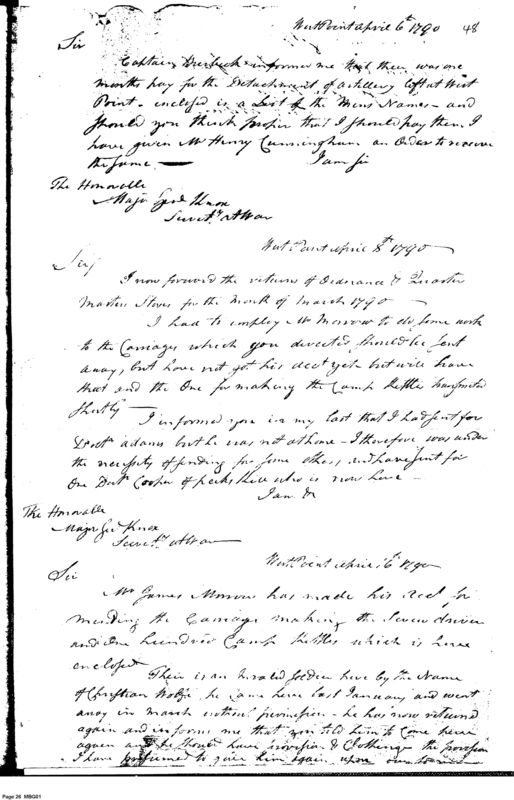 West Point April 6th 1790 48
Sir
Captain informed me that there was one
months pay for the Detachment of artillery left at West
Point - inclosed is a List of the Mens Names - and
Should you think proper that I should pay them I
have given Mr Henry Cunningham an Order to receive
the same - I am Sir
The Honorable
Major Genl Knox
Secretr at War
West Point April 8th 1790
Sir
I now forward the returns of Ordnance & Quarter
Masters Stores for the Month of March 1790 -
I had to employ Mr Morrow to do some work
to the Carriages which you directed should be sent
away, but have not got his acct yet but will have
that and the One for making the Camp Kettles transmitted
shortly -
I informed you in my last that I had sent for
Doctr Adams but he was not at home - I therefore was under
the necessity of sending for some other, and have sent for
One Doctr Cooper of Peeks Kill who is now here -
I am &
The Honorable
Major Ge Knox
Secretr at War
West Point April 1790
Sir
Mr James Morrow has made his acct for
mending the Carriage making the Screw driver
and One hundred Camp Kettles which is here
enclosed
Their is an Invalid Soldier here by the Name
of Christian he Came here last January and went
away in March without permission - he has now returned
again and informs me that you told him to Come here
again and he should have provision & Clothing the provision
I have to give him again upon
Page 26 MBG01